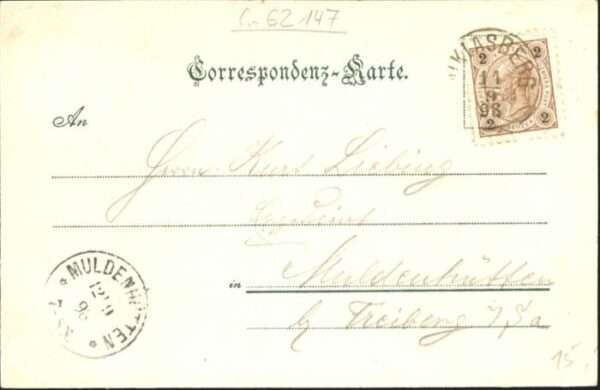 C-62 147
Correspondenz-Karte.
2 2
NIKLASBERG
11
9
98
2 2
An
Herrn Kurt Liebing
in Muldenhütten
b/ Freiberg i/Sa
* MULDENHÜTTEN *
12 9
98
15.